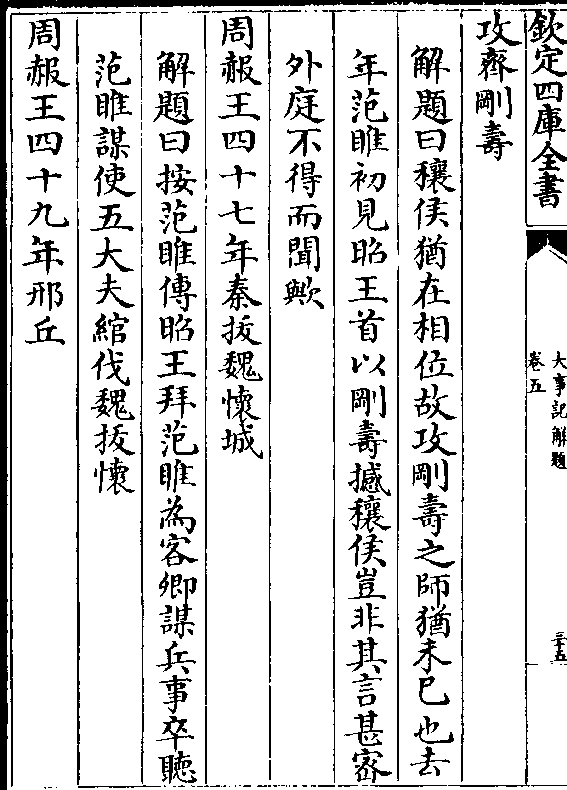 欽定四庫全書
大事記解題
卷五
三十五
攻齊剛壽
解題曰穰侯猶在相位故攻剛壽之師猶未已也去
年范睢初見昭王首以剛壽撼穰侯豈非其言甚密
外庭不得而聞歟
周赧王四十七年秦拔魏懷城
解題曰按范睢傳昭王拜范睢為客卿謀兵事卒聽
范睢謀使五大夫綰伐魏拔懷
周赧王四十九年邢丘